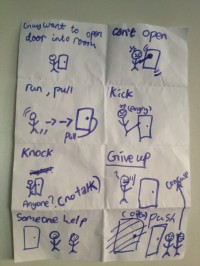 Guy want to open
door into room
can't open
run, pull
Pull
Kick
(Angry)
Knock
Anyone? (no talk)
Give up
Someone help
Push